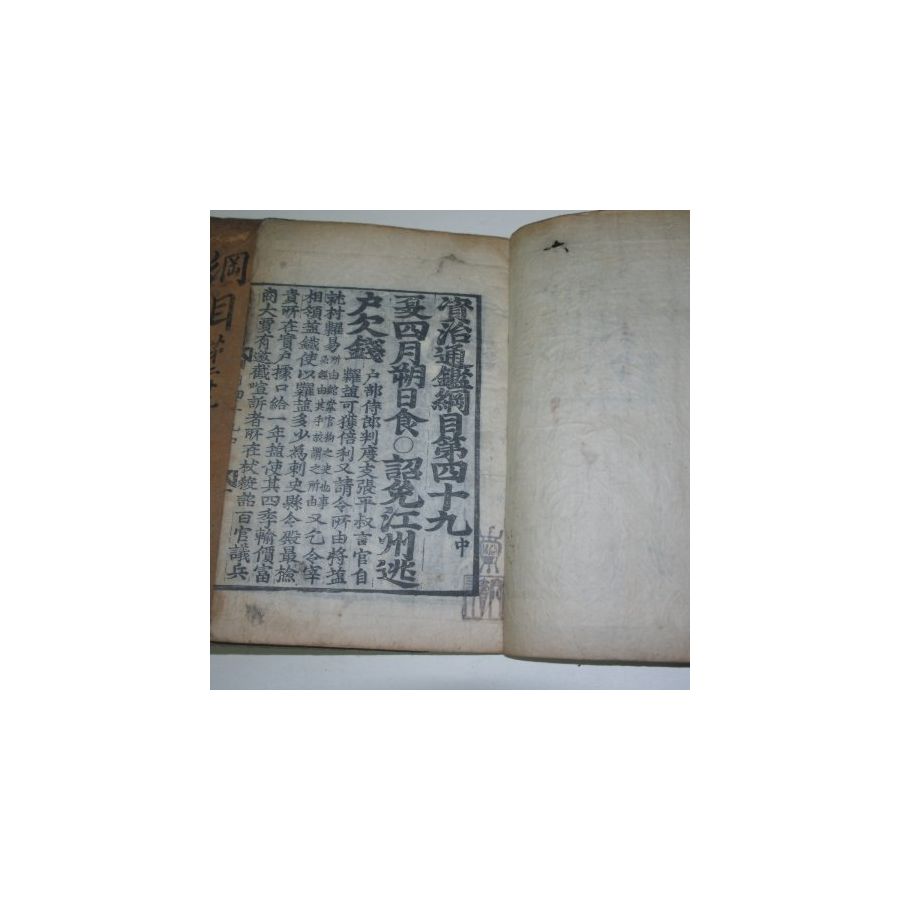 資治通鑑綱目第四十九中
夏四月朔日食○詔免江州逃
户欠錢
户部侍郎判度支張平叔言官自
糶鹽可獲倍利又請令所由將鹽
就村糶易
相領鹽鐵使以糶鹽多少爲刺史縣令殿最檢
責所在實户據口給一年鹽使其四季輸價富
商大賈有邀截喧訴者所在杖殺詔百官議兵
又乞令宰
綱目